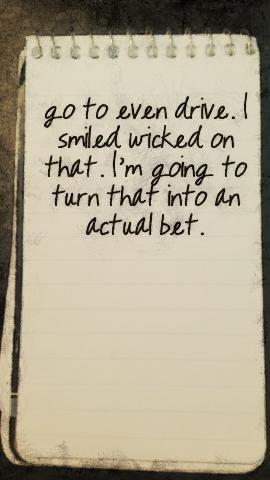 go to even drive. I
smiled wicked on
that. I'm going to
turn that into an
actual bet.